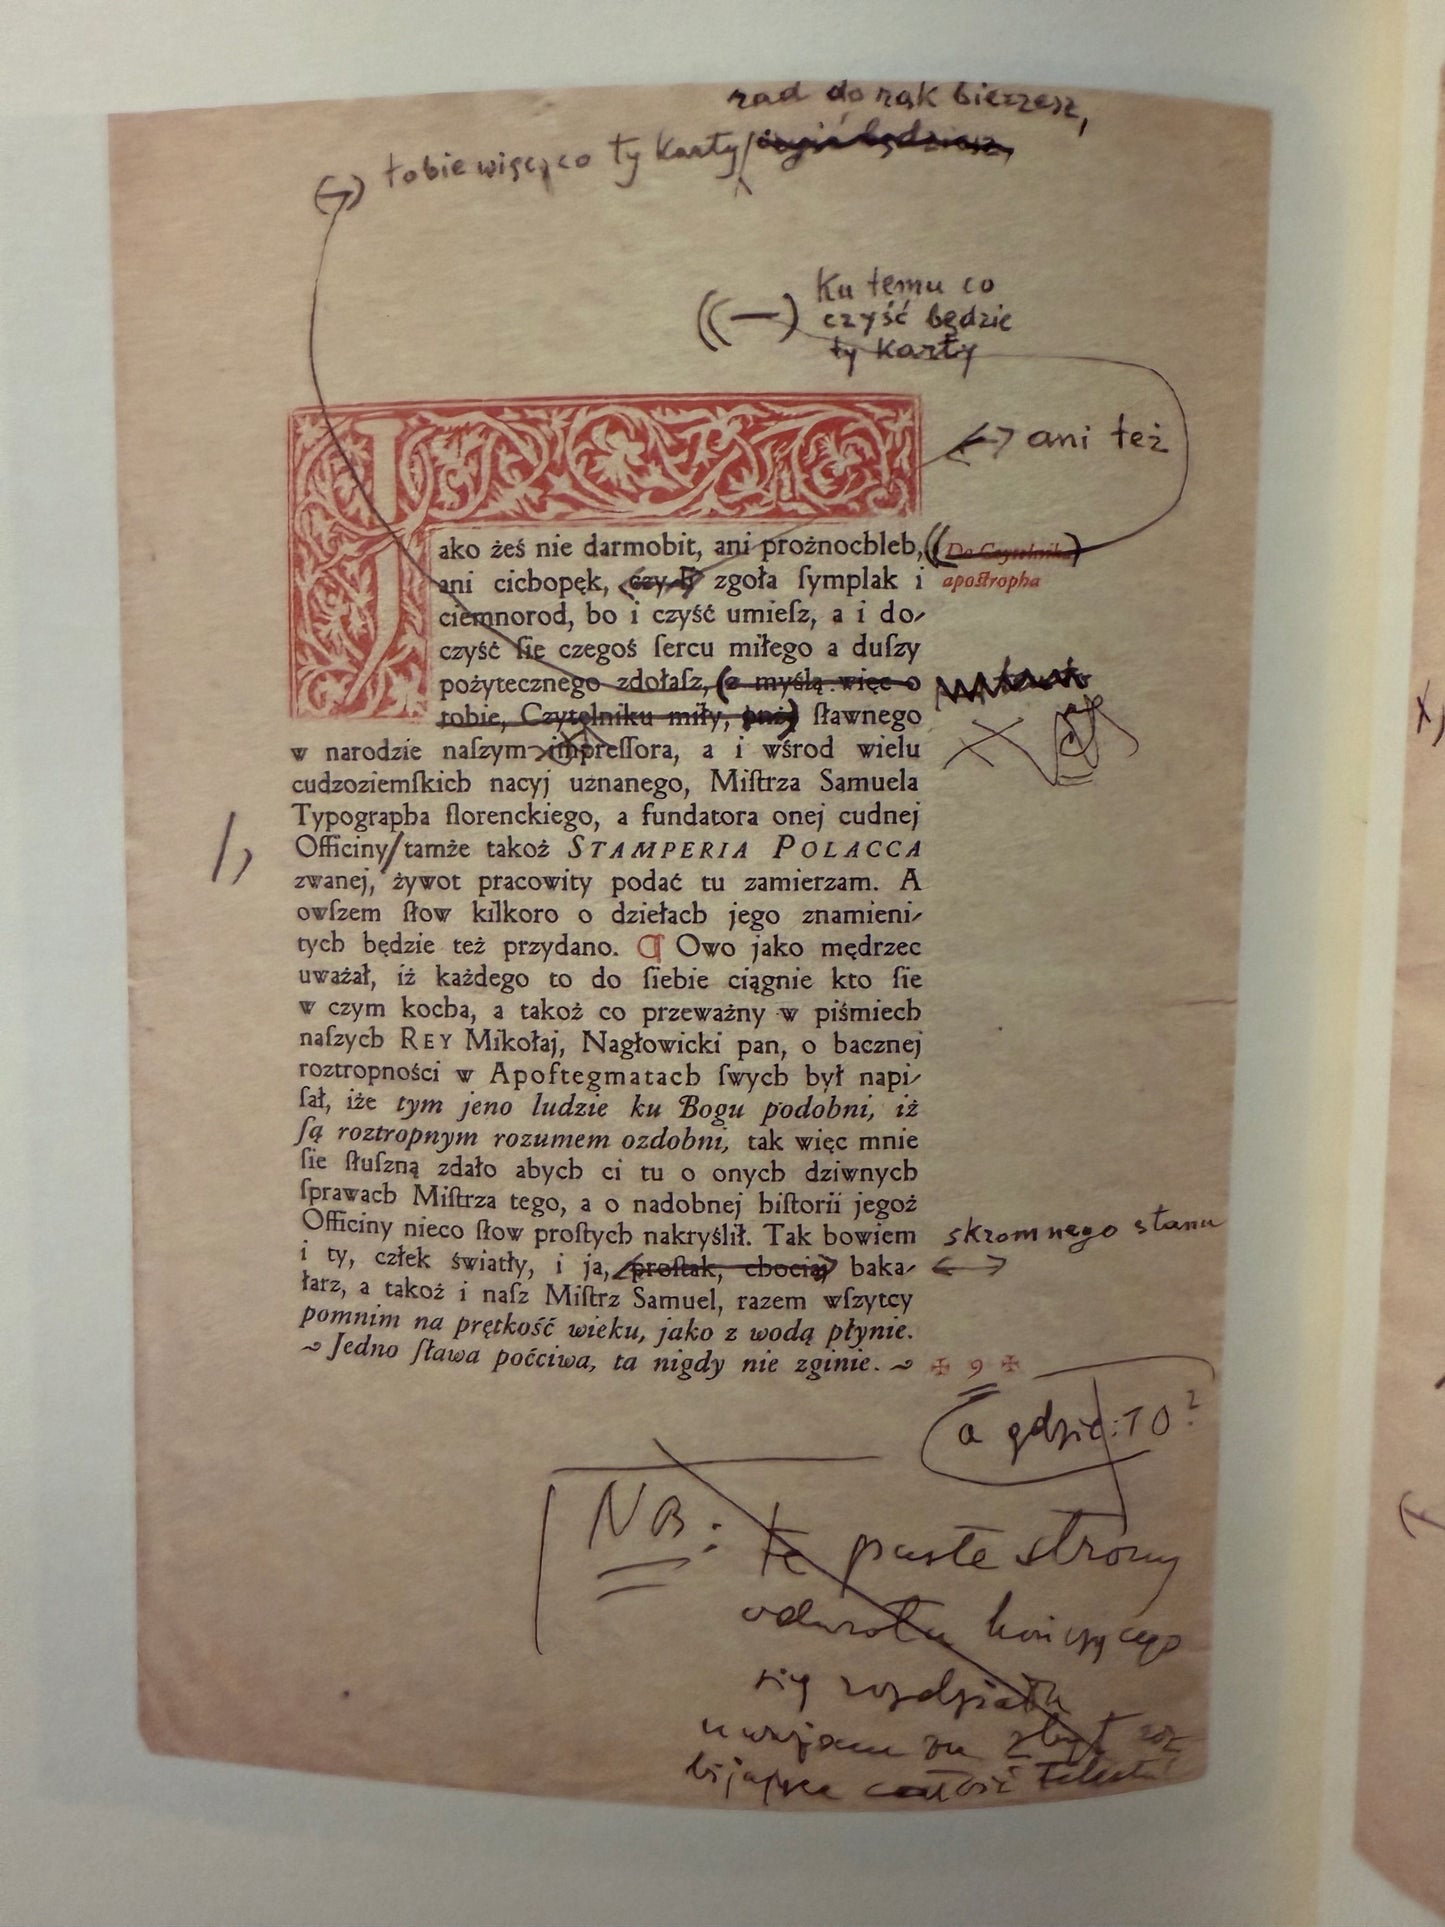 rad do rąk bierzesz,
tobie więc, co ty karty
Ku temu co
czyść będzie
ty karty
ani też
Jako żeś nie darmobit, ani prożnochleb,
Do Czytelnika
ani cichopęk, czyli zgoła ſymplak i
apostropha
ciemnorod, bo i czyść umieſz, a i do-
czyść ſie czegoś ſercu miłego a duſzy
pożytecznego zdołaſz, z myślą więc o
tobie, Czytelniku miły, ſławnego
w narodzie naſzym impreſſora, a i wśrod wielu
cudzoziemſkich nacyj uznanego, Miſtrza Samuela
Typographa florenckiego, a fundatora onej cudnej
Officiny/tamże takoż STAMPERIA POLACCA
zwanej, żywot pracowity podać tu zamierzam. A
owſzem ſłow kilkoro o dziełach jego znamieni-
tych będzie też przydano. ¶ Owo jako mędrzec
uważał, iż każdego to do ſiebie ciągnie kto ſie
w czym kocha, a takoż co przeważny w piśmiech
naſzych REY Mikołaj, Nagłowicki pan, o bacznej
roztropności w Apoftegmatach ſwych był napi-
ſał, iże tym jeno ludzie ku Bogu podobni, iż
ſą roztropnym rozumem ozdobni, tak więc mnie
ſie ſłuſzną zdało abych ci tu o onych dziwnych
ſprawach Miſtrza tego, a o nadobnej hiſtorii jegoż
Officiny nieco ſłow proſtych nakryślił. Tak bowiem
skromnego stanu
i ty, człek światły, i ja, proſtak, chociaj baka-
łarz, a takoż i naſz Miſtrz Samuel, razem wſzytcy
pomnim na prętkość wieku, jako z wodą płynie.
Jedno ſława poćciwa, ta nigdy nie zginie. ✠ 9 ✠
a gdzie: 10?
NB: te puste strony
odwrotu kończącego
się rozdziału
uważam za zbyt roz
bijające całość tekstu